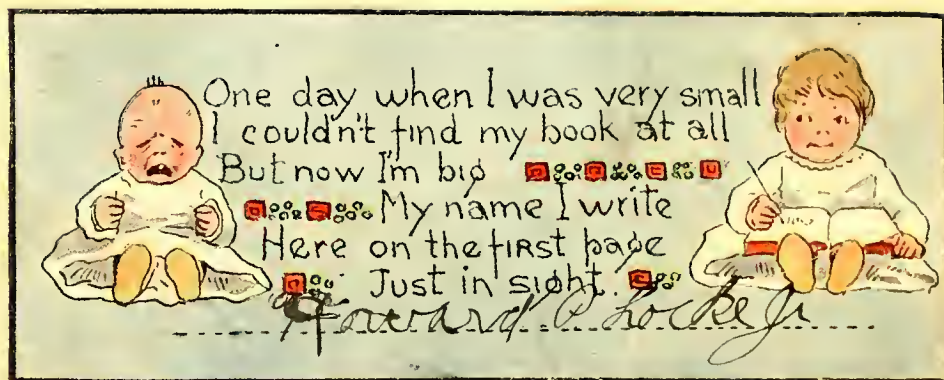 One day when I was very small
I couldn't find my book at all
But now I'm big
My name I write
Here on the first page
Just in sight.
Howard P Locke Jr